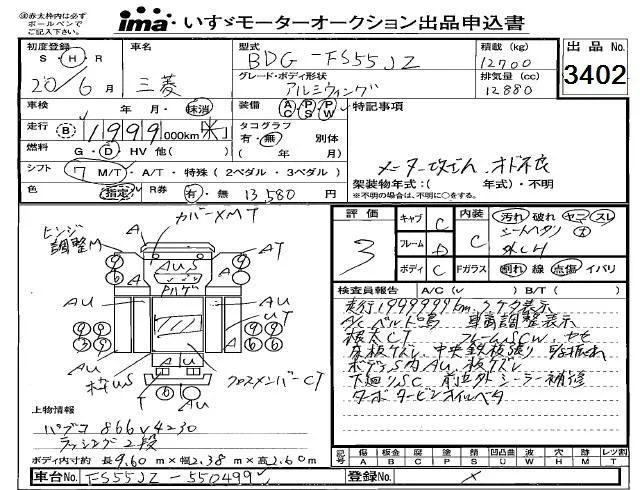 ㊟赤太枠内は必ず
ボールペンで
ご記入下さい。
ima いすゞモーターオークション出品申込書
初度登録 車名 型式 積載 (kg) 出品 No.
S・H・R BDG-FS55JZ 12700
20/6月 三菱 グレード・ボディ形状 排気量 (cc) 3402
アルミウィング 12880
車検 年・月・抹消 装備 AC PS PW 特記事項
走行 B 1999,000km 米 タコグラフ
有・無 別体
燃料 G・D・HV 他( ) ( 年 月)
シフト 7 M/T・A/T・特殊 (2ペダル・3ペダル) メーター改ざん、オド不良
色 指定 R券 有・無 13,580円 架装物年式:( 年式)・不明
※不明の場合は、不明に○をする。
カバーXMT
評価 キャブ C 内装 汚れ 破れ ヤニ スレ
ヒンジ
調整M A AT
3 フレーム D C シートヘタリ 大
AUS
ボディ C Fガラス 割れ 線 点傷 イバリ
検査員報告 A/C (レ ) B/T ( )
AU AU
走行1999999km、7ケタ表示
UT
A/Cベルト鳴 車高調整表示
根太CT フレームSCW、ヤセ
AU
床板ズレ、中央鉄板張り
木枠US T AU クロスメンバーCT
ボディS内AU、板ズレ
下廻りSC 前立外シーラー補修
上物情報
ターボタービンオイルベタ
パブコ 866V4230
ラッシング2段
ボディ内寸約 長9.60m×幅2.38m×高2.60m
記号 傷 板金 腐 塗 錆 凹凸曲 波 穴 跡 レツ割
A B C P S U W H M T
車台No. FS55JZ-550499 登録No. ×